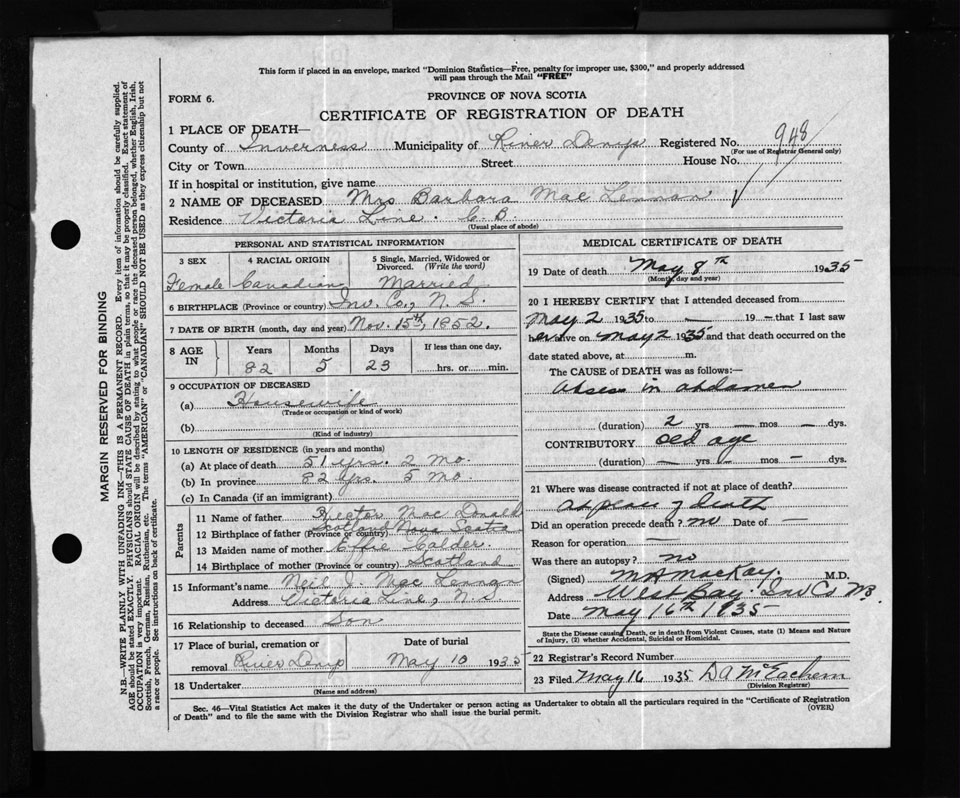 This form if placed in an envelope, marked "Dominion Statistics—Free, penalty for improper use, $300," and properly addressed
will pass through the Mail "FREE"
FORM 6.
PROVINCE OF NOVA SCOTIA
CERTIFICATE OF REGISTRATION OF DEATH
1 PLACE OF DEATH—
County of Inverness Municipality of River Denys Registered No. 948
(For use of Registrar General only)
City or Town Street House No.
If in hospital or institution, give name
2 NAME OF DECEASED Mrs Barbara Mac Lennan
Residence Victoria Line. C.B.
(Usual place of abode)
PERSONAL AND STATISTICAL INFORMATION
3 SEX 4 RACIAL ORIGIN 5 Single, Married, Widowed or
Divorced. (Write the word)
Female Canadian Married
6 BIRTHPLACE (Province or country) Inv. Co., N.S.
7 DATE OF BIRTH (month, day and year) Nov. 15th, 1852.
8 AGE IN Years Months Days If less than one day,
82 5 23 hrs. or min.
9 OCCUPATION OF DECEASED
(a) Housewife
(Trade or occupation or kind of work)
(b)
(Kind of industry)
10 LENGTH OF RESIDENCE (in years and months)
(a) At place of death 51 yrs. 2 mo.
(b) In province 82 yrs. 5 mo.
(c) In Canada (if an immigrant)
Parents
11 Name of father Hector Mac Donald
12 Birthplace of father (Province or country) Scotland Nova Scotia
13 Maiden name of mother Effie Calder.
14 Birthplace of mother (Province or country) Scotland
15 Informant's name Neil J. Mac Lennan
Address Victoria Line, N.S
16 Relationship to deceased Son
17 Place of burial, cremation or Date of burial
removal River Denys May 10 1935
18 Undertaker
(Name and address)
MEDICAL CERTIFICATE OF DEATH
19 Date of death May 8th 1935
(Month, day and year)
20 I HEREBY CERTIFY that I attended deceased from
May 2 1935 to — 19 — that I last saw
her alive on May 2 1935 and that death occurred on the
date stated above, at m.
The CAUSE of DEATH was as follows:—
Abses in abdamen
(duration) 2 yrs. — mos — dys.
CONTRIBUTORY old age
(duration) — yrs — mos — dys.
21 Where was disease contracted if not at place of death?
At place of death
Did an operation precede death? no Date of —
Reason for operation —
Was there an autopsy? no
(Signed) M H MacKay. M.D.
Address West Bay. Inv Co
Date May 16th 1935
State the Disease causing Death, or in death from Violent Causes, state (1) Means and Nature
of Injury, (2) whether Accidental, Suicidal or Homicidal.
22 Registrar's Record Number
23 Filed May 16 1935 D A
(Division Registrar)
Sec. 46—Vital Statistics Act makes it the duty of the Undertaker or person acting as Undertaker to obtain all the particulars required in the "Certificate of Registration
of Death" and to file the same with the Division Registrar who shall issue the burial permit. (OVER)
MARGIN RESERVED FOR BINDING
N.B.—WRITE PLAINLY WITH UNFADING INK—THIS IS A PERMANENT RECORD. Every item of information should be carefully supplied.
AGE should be stated EXACTLY. PHYSICIANS should STATE CAUSE OF DEATH in plain terms, so that it may be properly classified. Exact statement of
OCCUPATION is very important. RACIAL ORIGIN will be described by stating to what people or race the deceased person belonged, whether English, Irish,
Scottish, French, German, Russian, Ruthenian, etc. The terms "AMERICAN" or "CANADIAN" SHOULD NOT BE USED as they express citizenship but not
a race or people. See instructions on back of certificate.